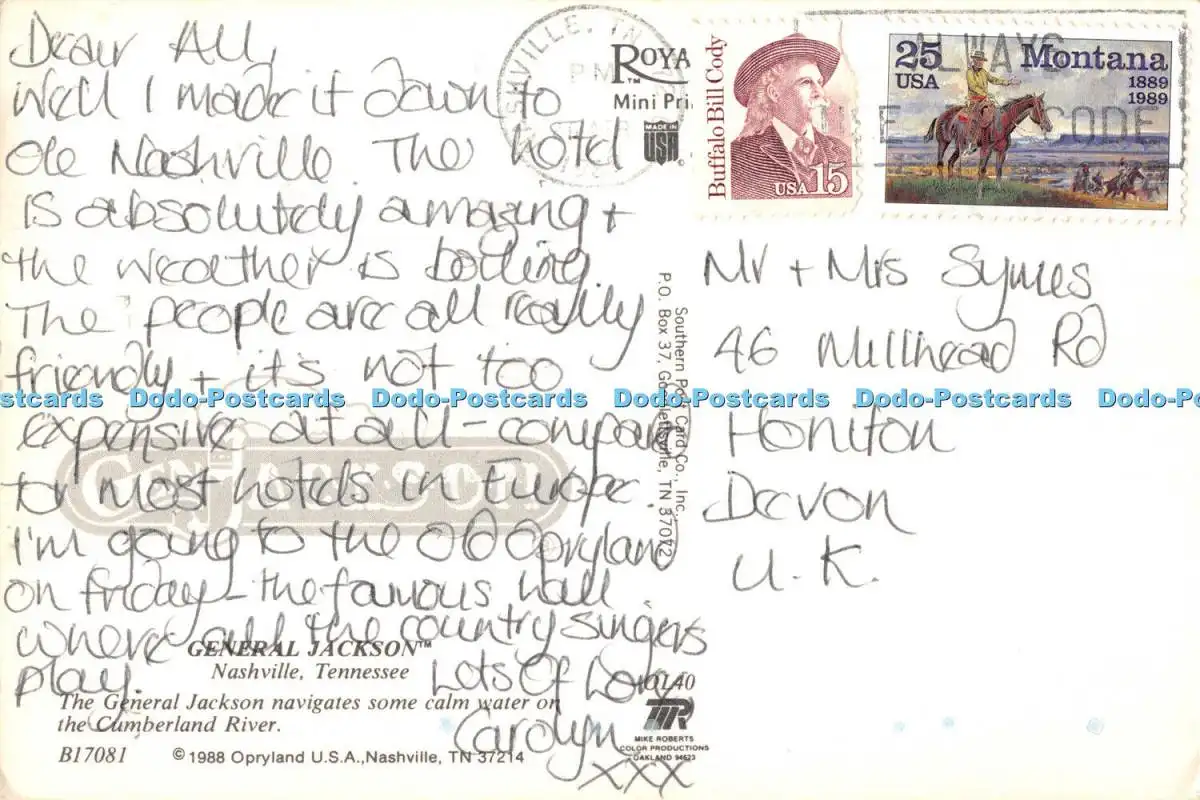 Dear All,
Well I made it down to
ole Nashville. The hotel
is absolutely amazing +
the weather is boiling.
The people are all really
friendly + it's not too
expensive at all - compare
to most hotels in Europe.
I'm going to the old Opryland
on Friday - the famous hall
where all the country singers
play.
Lots Of Love
Carolyn
xxx
GEN JACKSON
GENERAL JACKSON™
Nashville, Tennessee
The General Jackson navigates some calm water on
the Cumberland River.
B17081 © 1988 Opryland U.S.A., Nashville, TN 37214
ROYA
™
Mini Pri
MADE IN
USA
Southern Post Card Co., Inc.
P.O. Box 37, Goodlettsville, TN 37072
40
MR
MIKE ROBERTS
COLOR PRODUCTIONS
OAKLAND 94623
SHVILLE, TN
PM
Buffalo Bill Cody
USA 15
25
USA
Montana
1889
1989
ALWAYS
E CODE
Mr + Mrs Symes
46 Millhead Rd
Honiton
Devon
U.K.
Dodo-Postcards Dodo-Postcards Dodo-Postcards Dodo-Postcards